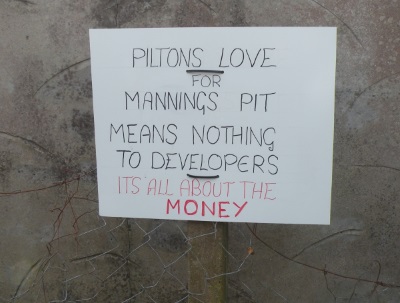 PILTONS LOVE
FOR
MANNINGS PIT
MEANS NOTHING
TO DEVELOPERS
ITS ALL ABOUT THE
MONEY